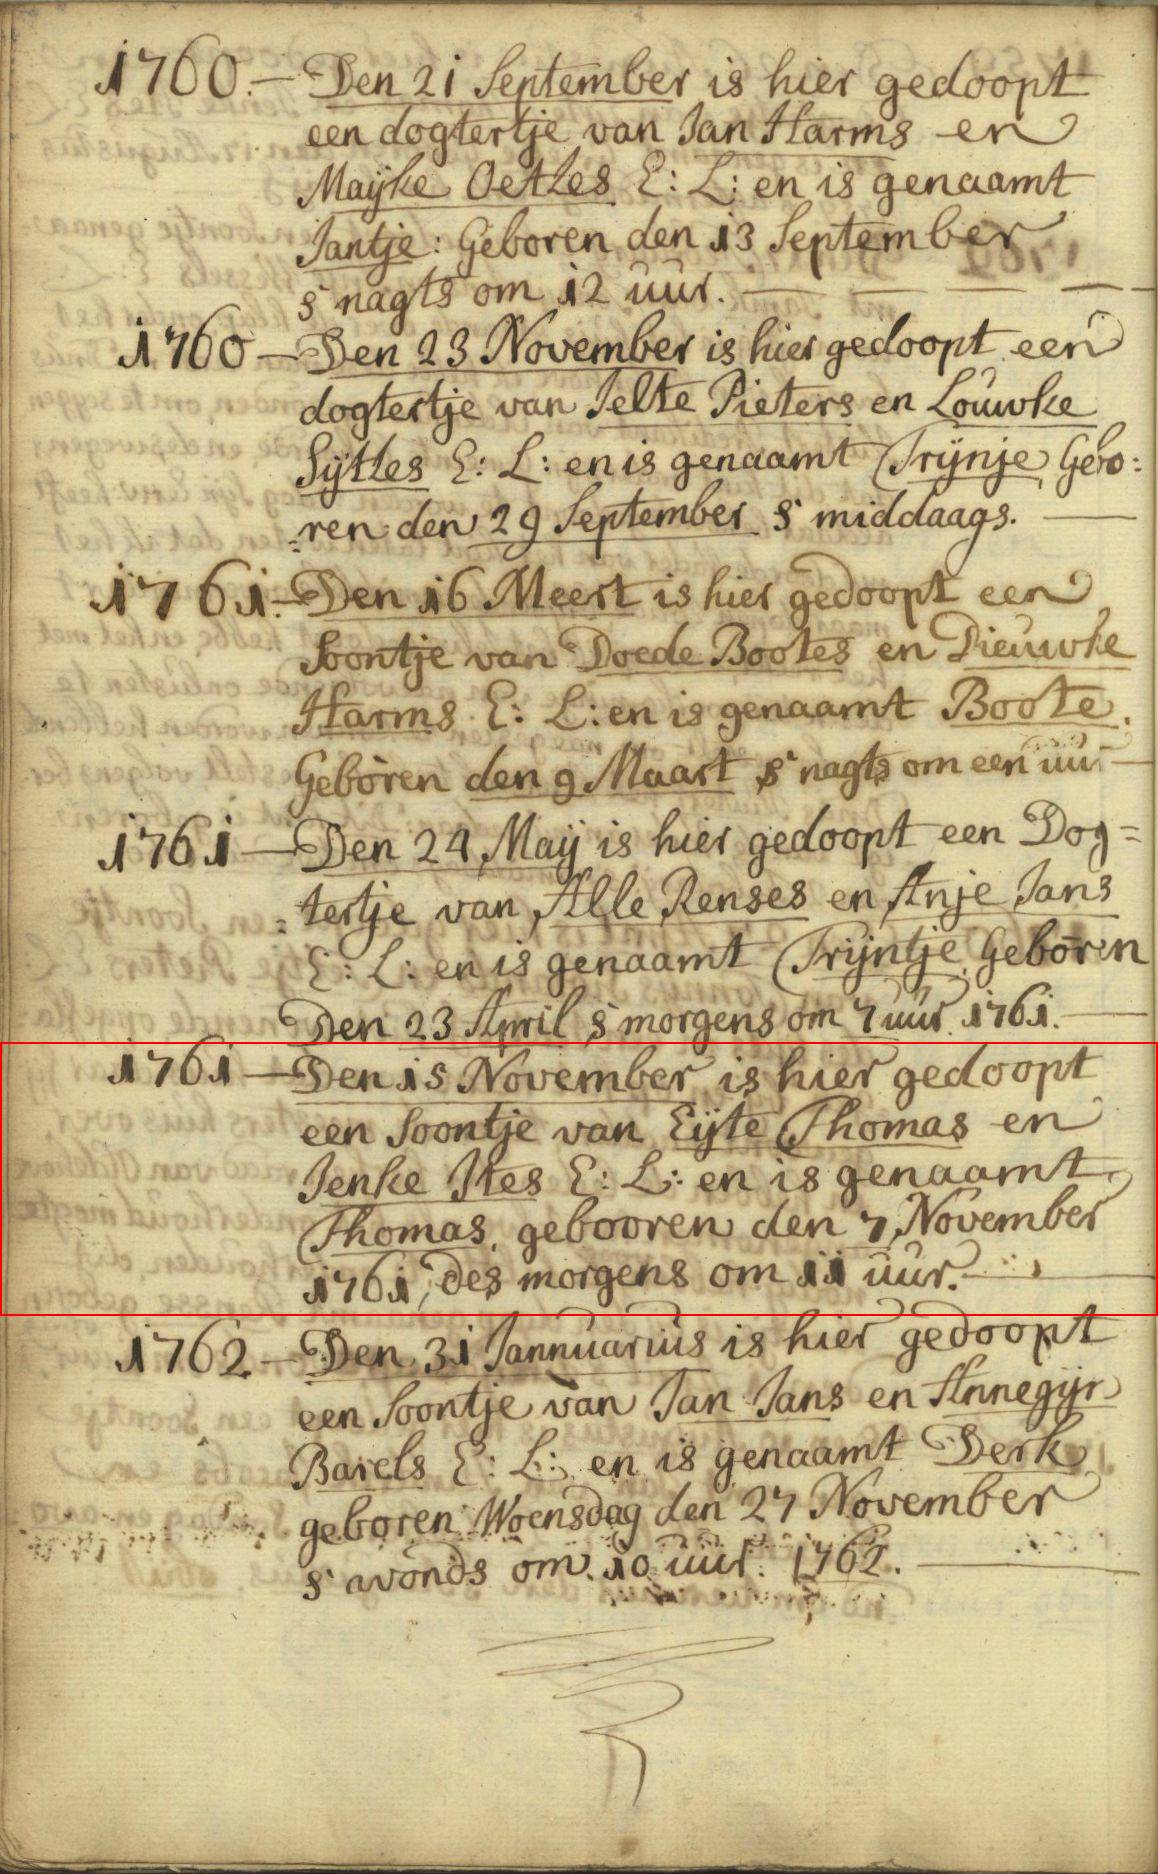 1760.— Den 21 September is hier gedoopt
een dogtertje van Jan Harms en
Maijke Oetzes E: L: en is genaamt
Jantje: Geboren den 13 September
s nagts om 12 uur.
1760— Den 23 November is hier gedoopt een
dogtertje van Jelte Pieters en Louwke
Sijtzes E: L: en is genaamt Trijnje, Gebo:
=ren den 29 September s' middaags.
1761.— Den 16 Meert is hier gedoopt een
Soontje van Doede Bootes en Dieuwke
Harms E: L: en is genaamt Boote.
Geboren den 9 Maart s' nagts om een uur
1761— Den 24 Maij is hier gedoopt een Dog=
=tertje van Alle Renses en Anje Jans
E: L: en is genaamt Trijntje, Geboren
Den 23 April s' morgens om 7 uur. 1761.
1761— Den 15 November is hier gedoopt
een Soontje van Eijte Thomas en
Jenke Ites E: L: en is genaamt
Thomas, gebooren den 7 November
1761, des morgens om 11 uur.
1762.— Den 31 Jannuarius is hier gedoopt
een Soontje van Jan Jans en Annegijr
Barels E: L: en is genaamt Derk
geboren Woensdag den 27 November
s' avonds om 10 uur. 1762.